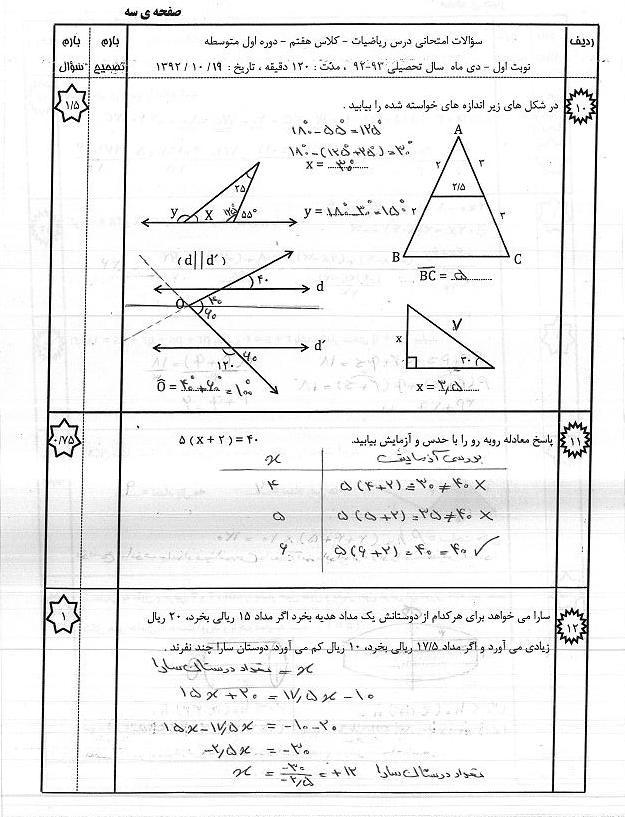 صفحه ی سه
ردیف
سؤالات امتحانی درس ریاضیات - کلاس هفتم - دوره اول متوسطه
نوبت اول - دی ماه سال تحصیلی ۹۳-۹۲ ، مدت : ۱۲۰ دقیقه ، تاریخ : ۱۹ / ۱۰ / ۱۳۹۲
بارم تصحیح
بارم سؤال
۱۰
در شکل های زیر اندازه های خواسته شده را بیابید .
۱/۵
۱۸۰° - ۵۵° = ۱۲۵°
۱۸۰° - (۱۲۵° + ۲۵°) = ۳۰°
x = ۳۰°
۲۵
y x ۱۲۵° ۵۵°
y = ۱۸۰° - ۳۰° = ۱۵۰°
A
۲ ۳
۲/۵
۲ ۳
B C
BC = ۵
(d||d′)
۴۰
d
O ۴۰
۶۰
d′
۶۰
۱۲۰
Ô = ۴۰° + ۶۰° = ۱۰۰°
۷
x
۳۰°
x = ۳٫۵
۱۱
پاسخ معادله روبه رو را با حدس و آزمایش بیابید.
۵ ( x + ۲ ) = ۴۰
۰/۷۵
x بررسی آزمایش
۴ ۵ (۴+۲) = ۳۰ ≠ ۴۰ ×
۵ ۵ (۵+۲) = ۳۵ ≠ ۴۰ ×
۶ ۵ (۶+۲) = ۴۰ = ۴۰ ✓
۱۲
سارا می خواهد برای هرکدام از دوستانش یک مداد هدیه بخرد اگر مداد ۱۵ ریالی بخرد، ۲۰ ریال
زیادی می آورد و اگر مداد ۱۷/۵ ریالی بخرد، ۱۰ ریال کم می آورد. دوستان سارا چند نفرند .
۱
x = تعداد دوستان سارا
۱۵x + ۲۰ = ۱۷٫۵x - ۱۰
۱۵x - ۱۷٫۵x = -۱۰ - ۲۰
-۲٫۵x = -۳۰
x = -۳۰/-۲٫۵ = +۱۲ تعداد دوستان سارا